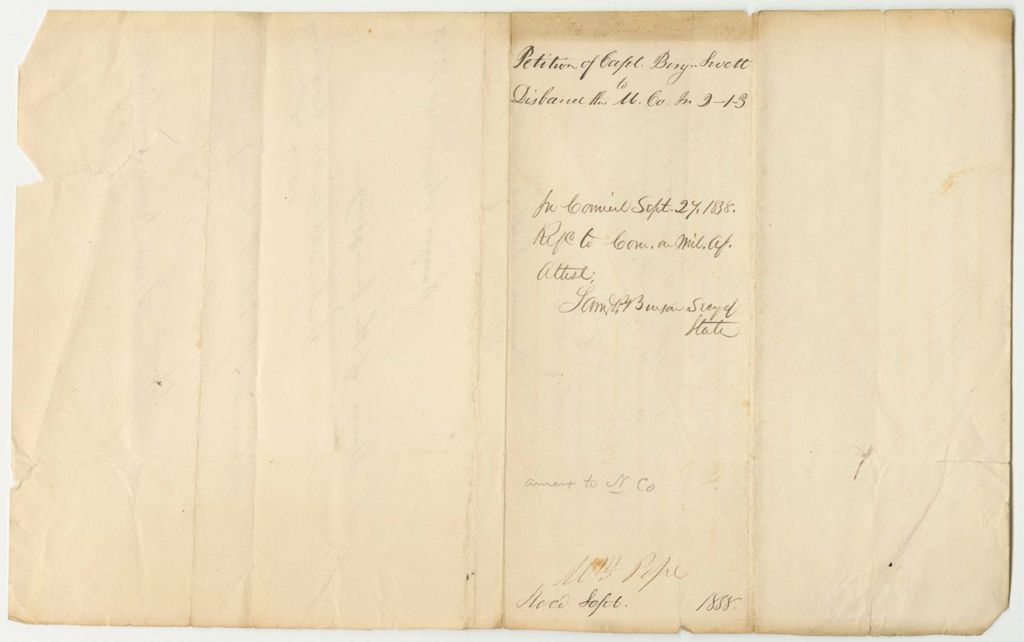 Petition of Capt. Benj. Swett
to
Disband the M. Co. In. 2-1-3
In Council Sept. 27. 1838.
Ref'd to Com. on Mil. Af.
Attest;
Saml. P. Benson Secy of
State
annex to N Co
Wm Pope
Sept. 1838.